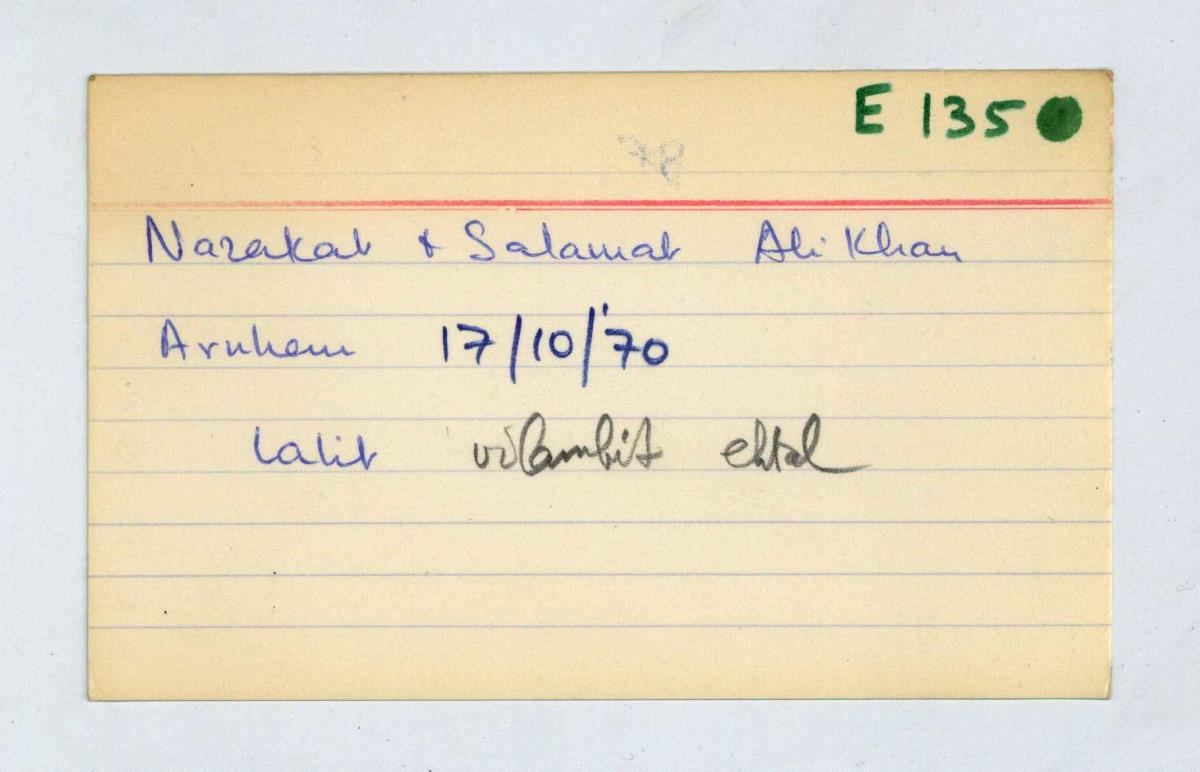 E 135
Nazakat & Salamat Ali Khan
Arnhem 17/10/'70
Lalit vilambit ektal